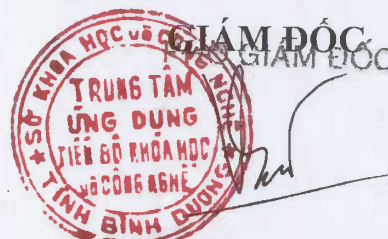 GIÁM ĐỐC
PHÓ GIÁM ĐỐC
SỞ KHOA HỌC VÀ CÔNG NGHỆ
TRUNG TÂM
ỨNG DỤNG
TIẾN BỘ KHOA HỌC
VÀ CÔNG NGHỆ
TỈNH BÌNH DƯƠNG